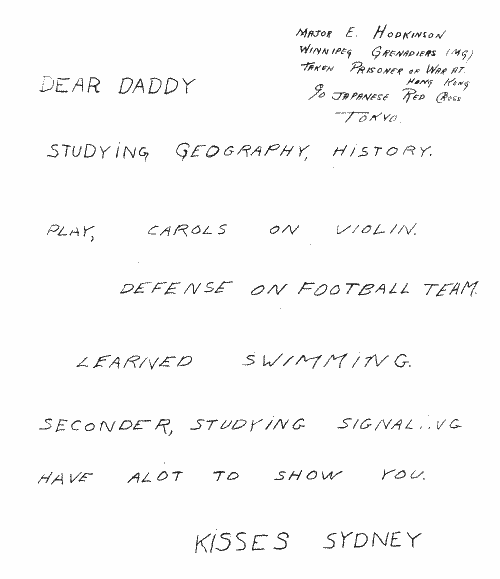 MAJOR E. HODKINSON
WINNIPEG GRENADIERS (MG)
TAKEN PRISONER OF WAR AT.
HONG KONG
C/O JAPANESE RED CROSS
TOKYO.
DEAR DADDY
STUDYING GEOGRAPHY, HISTORY.
PLAY, CAROLS ON VIOLIN.
DEFENSE ON FOOTBALL TEAM.
LEARNED SWIMMING.
SECONDER, STUDYING SIGNAL..VG
HAVE ALOT TO SHOW YOU.
KISSES SYDNEY